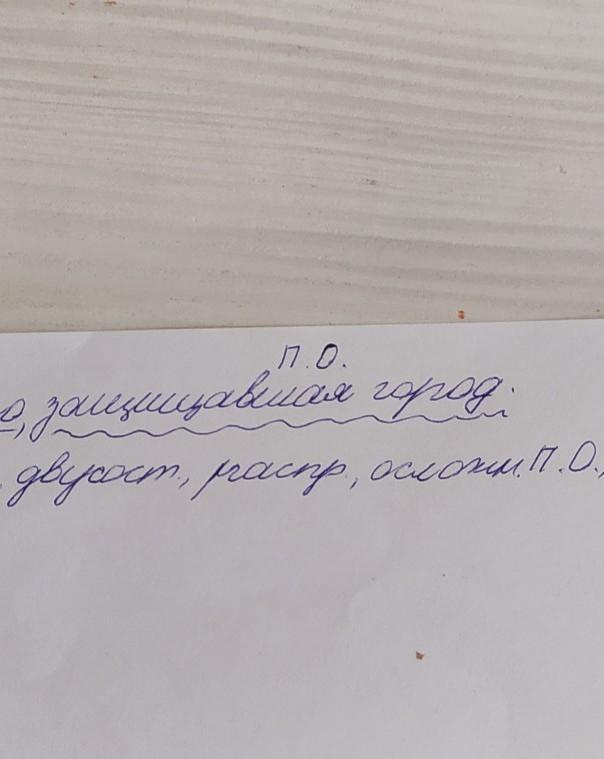 П.О.
о, защищавшая город.
двусост., распр., осложн. П.О.,